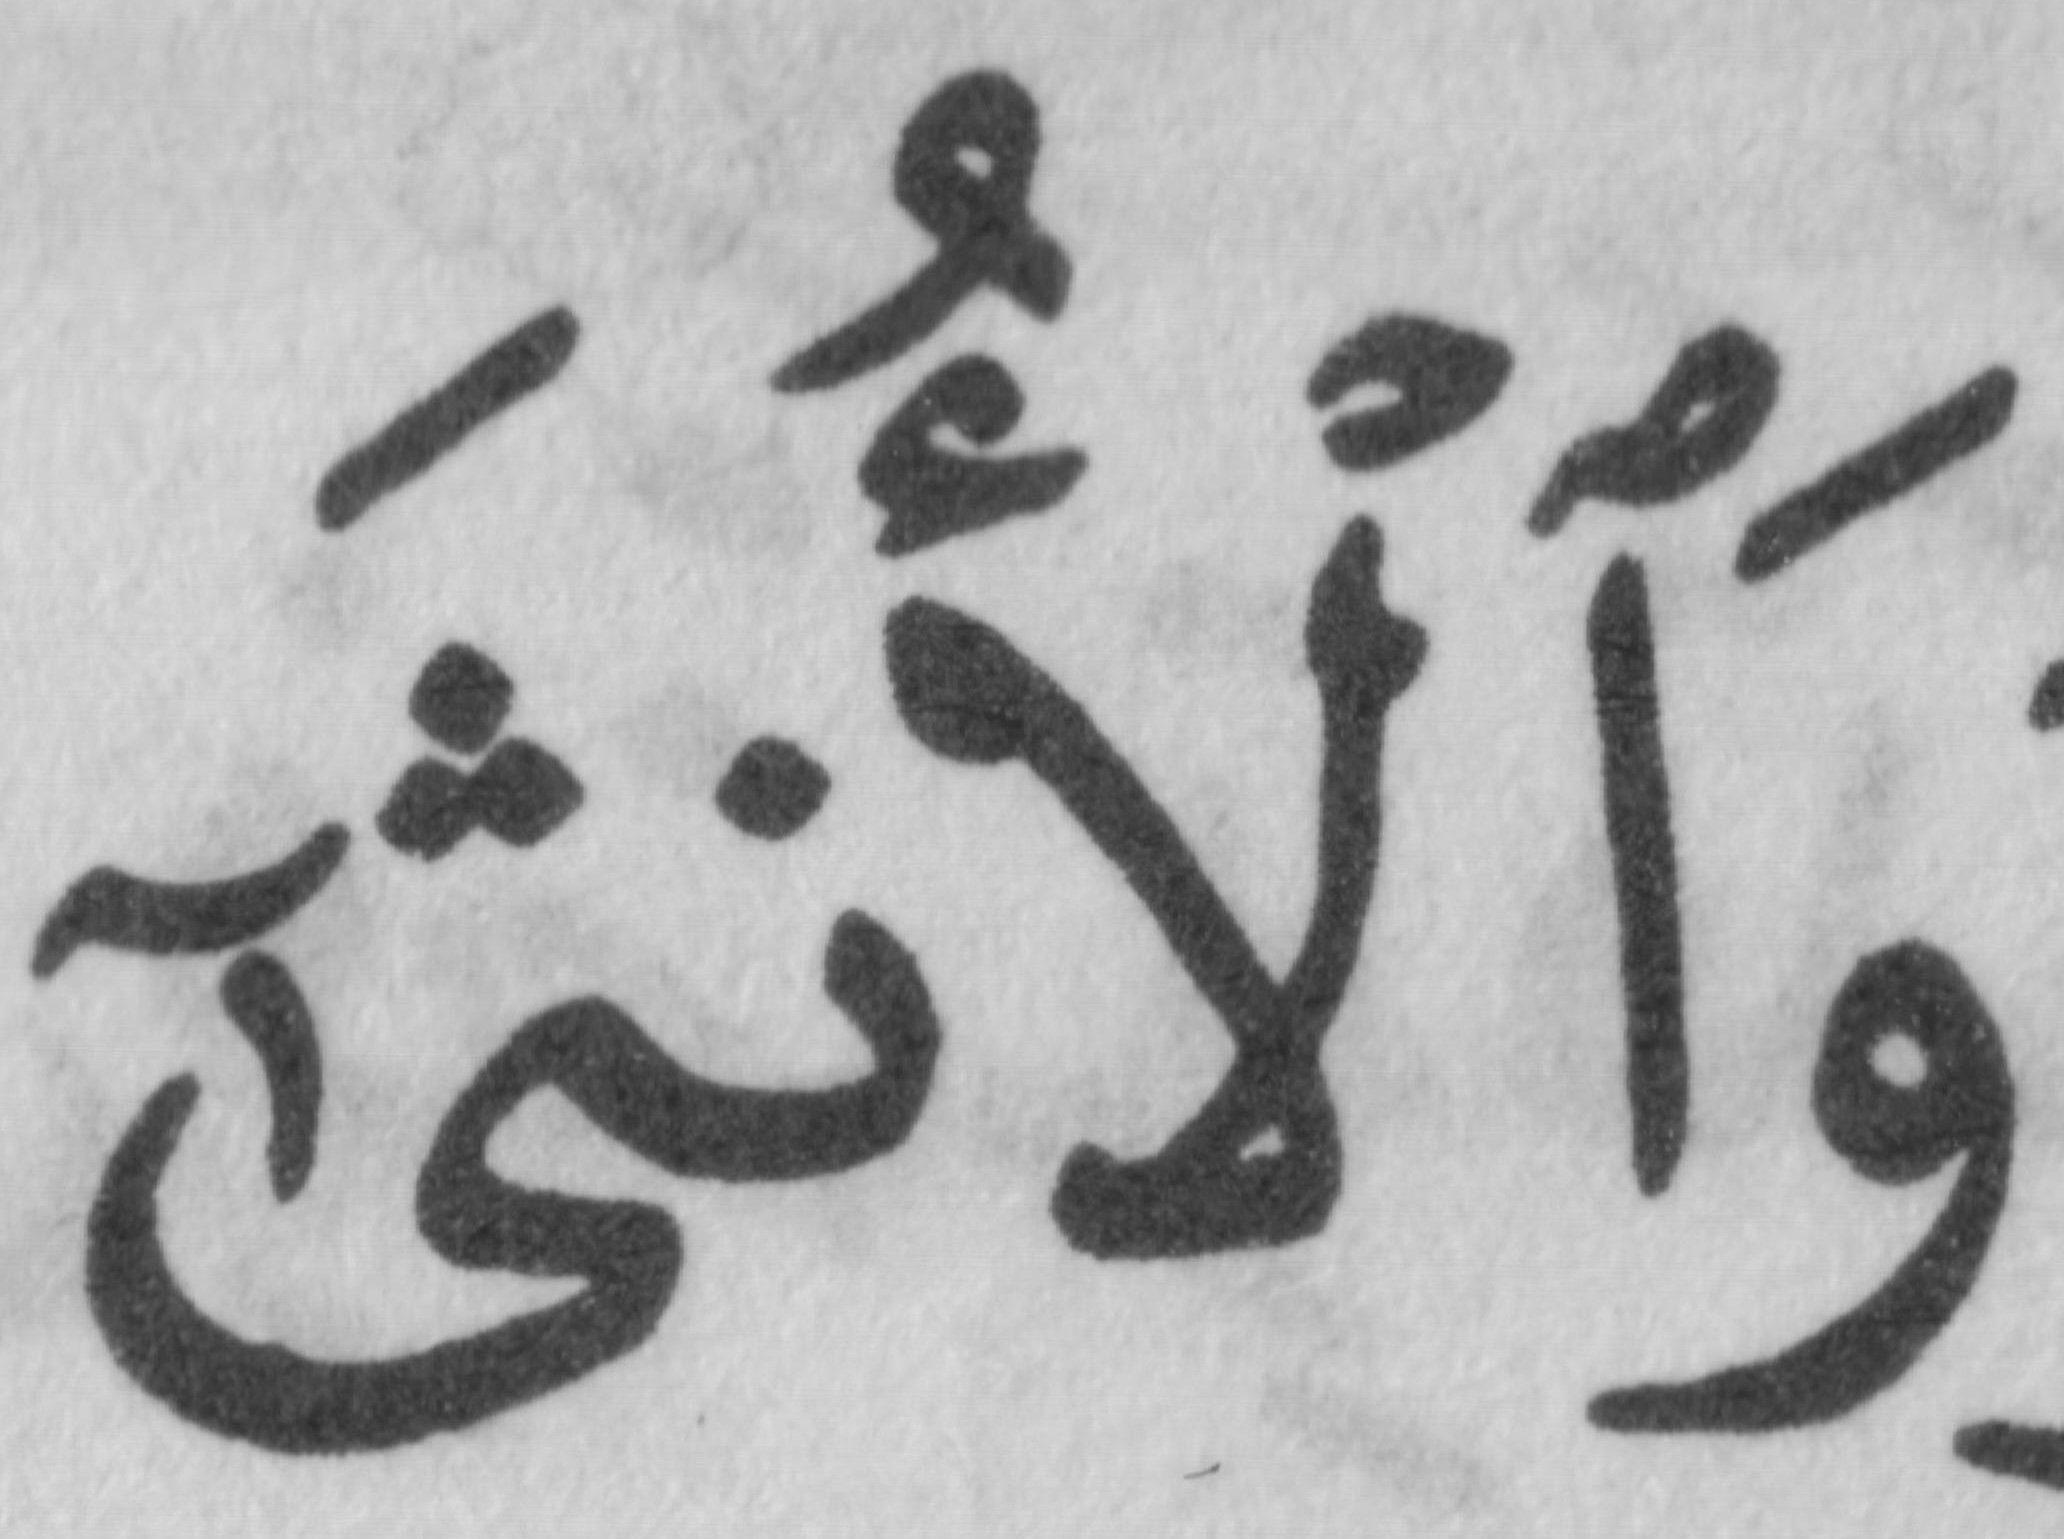 وَٱلْأُنثَىٰٓ